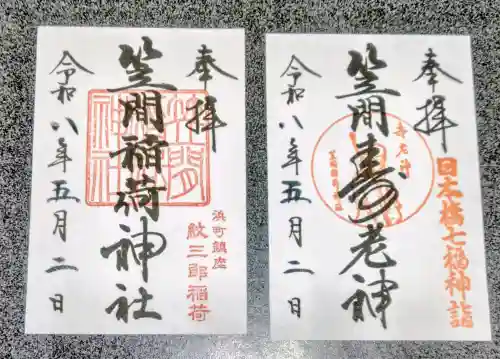 奉拝
笠間稲荷神社
浜町鎮座
紋三郎稲荷
令和八年五月二日
奉拝
日本橋七福神詣
笠間寿老神
寿老神
令和八年五月二日